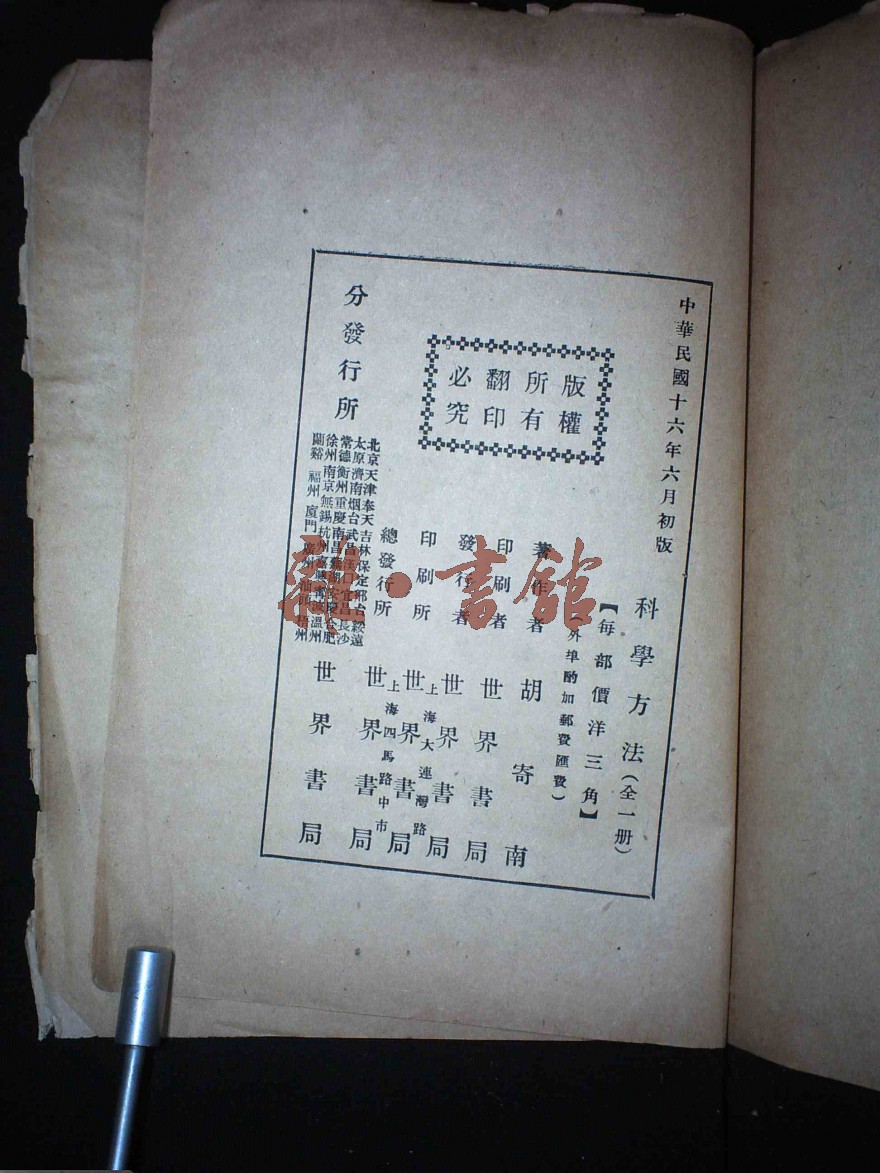 中華民國十六年六月初版
科學方法(全一册)
【每部價洋三角】
(外埠酌加郵費匯費)
版權
所有
翻印
必究
著作者 胡寄南
印刷者 世界書局
發行者 世界書局
印刷所 上海大連灣路 世界書局
總發行所 上海四馬路中市 世界書局
分發行所
北京天津奉天吉林保定邢台綏遠
太原濟南烟台武昌漢口宜昌長沙
常德衡州重慶南昌蕪湖安慶合肥
徐州南京無錫杭州嘉興甯波溫州
蘭谿福州廈門廣州汕頭梧州
世界書局
書舘